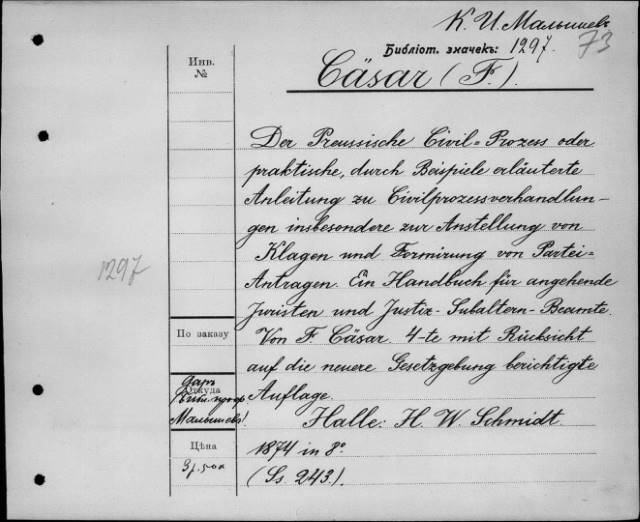 К. И. Малышевъ
73
Библіот. значекъ: 1297.
Инв.
№
Cäsar (F.).
Der Preussische Civil-Prozess oder
praktische, durch Beispiele erläuterte
Anleitung zu Civilprozessverhandlun-
gen insbesondere zur Anstellung von
Klagen und Formirung von Partei-
Antragen. Ein Handbuch für angehende
Juristen und Justiz-Subaltern-Beamte.
Von F. Cäsar. 4-te mit Rücksicht
auf die neuere Gesetzgebung berichtigte
Auflage.
Halle: H. W. Schmidt.
1874 in 8º
(Ss. 243.).
1297
По заказу
Откуда
Даръ
Малышева
Цѣна